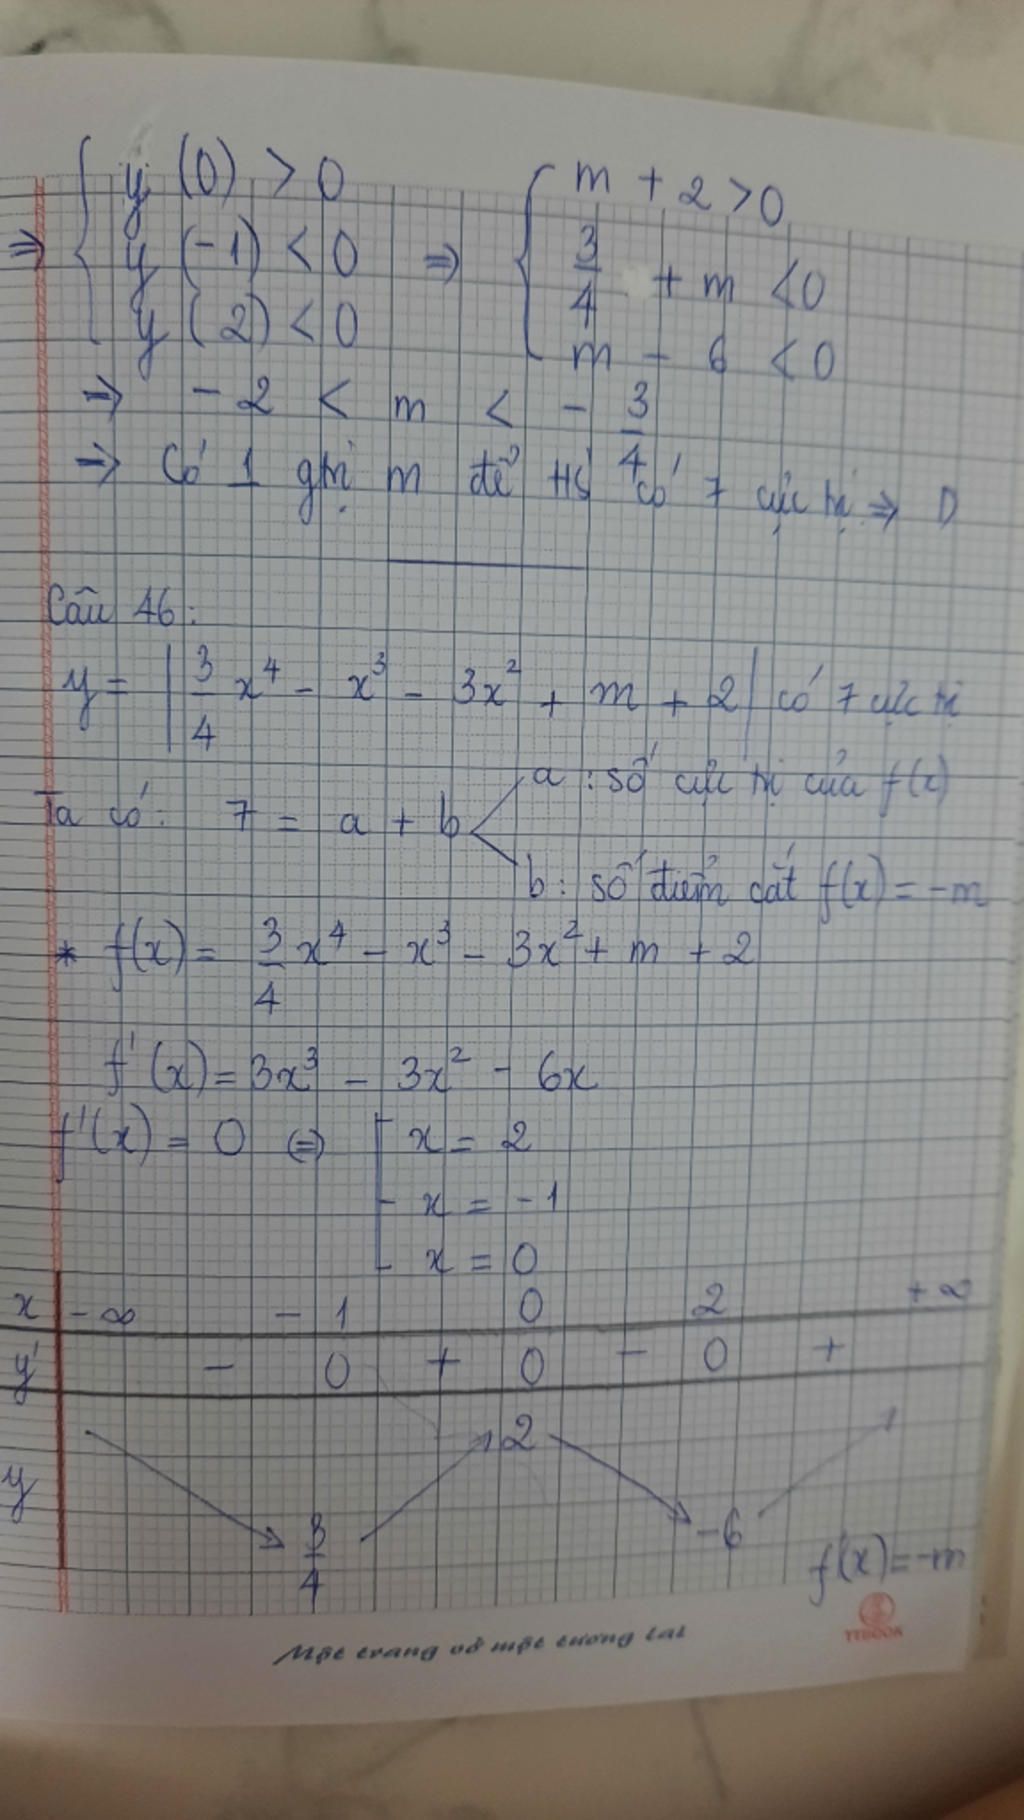 ⇒ { y (0) > 0 ⇒ { m + 2 > 0
y (-1) < 0 3/4 + m < 0
y (2) < 0 m - 6 < 0
⇒ -2 < m < -3/4
⇒ Có 1 gtrị m để HS có 7 cực trị ⇒ D
Câu 46:
y = | 3/4 x⁴ - x³ - 3x² + m + 2 | có 7 cực trị
Ta có: 7 = a + b
a : số cực trị của f(x)
b : số điểm cắt f(x) = -m
* f(x) = 3/4 x⁴ - x³ - 3x² + m + 2
f'(x) = 3x³ - 3x² - 6x
f'(x) = 0 ⇔ [ x = 2
x = -1
x = 0
x -∞ -1 0 2 +∞
y' - 0 + 0 - 0 +
y 3/4 2 -6
f(x) = -m
Một trang vở một tương lai
YTBOOK